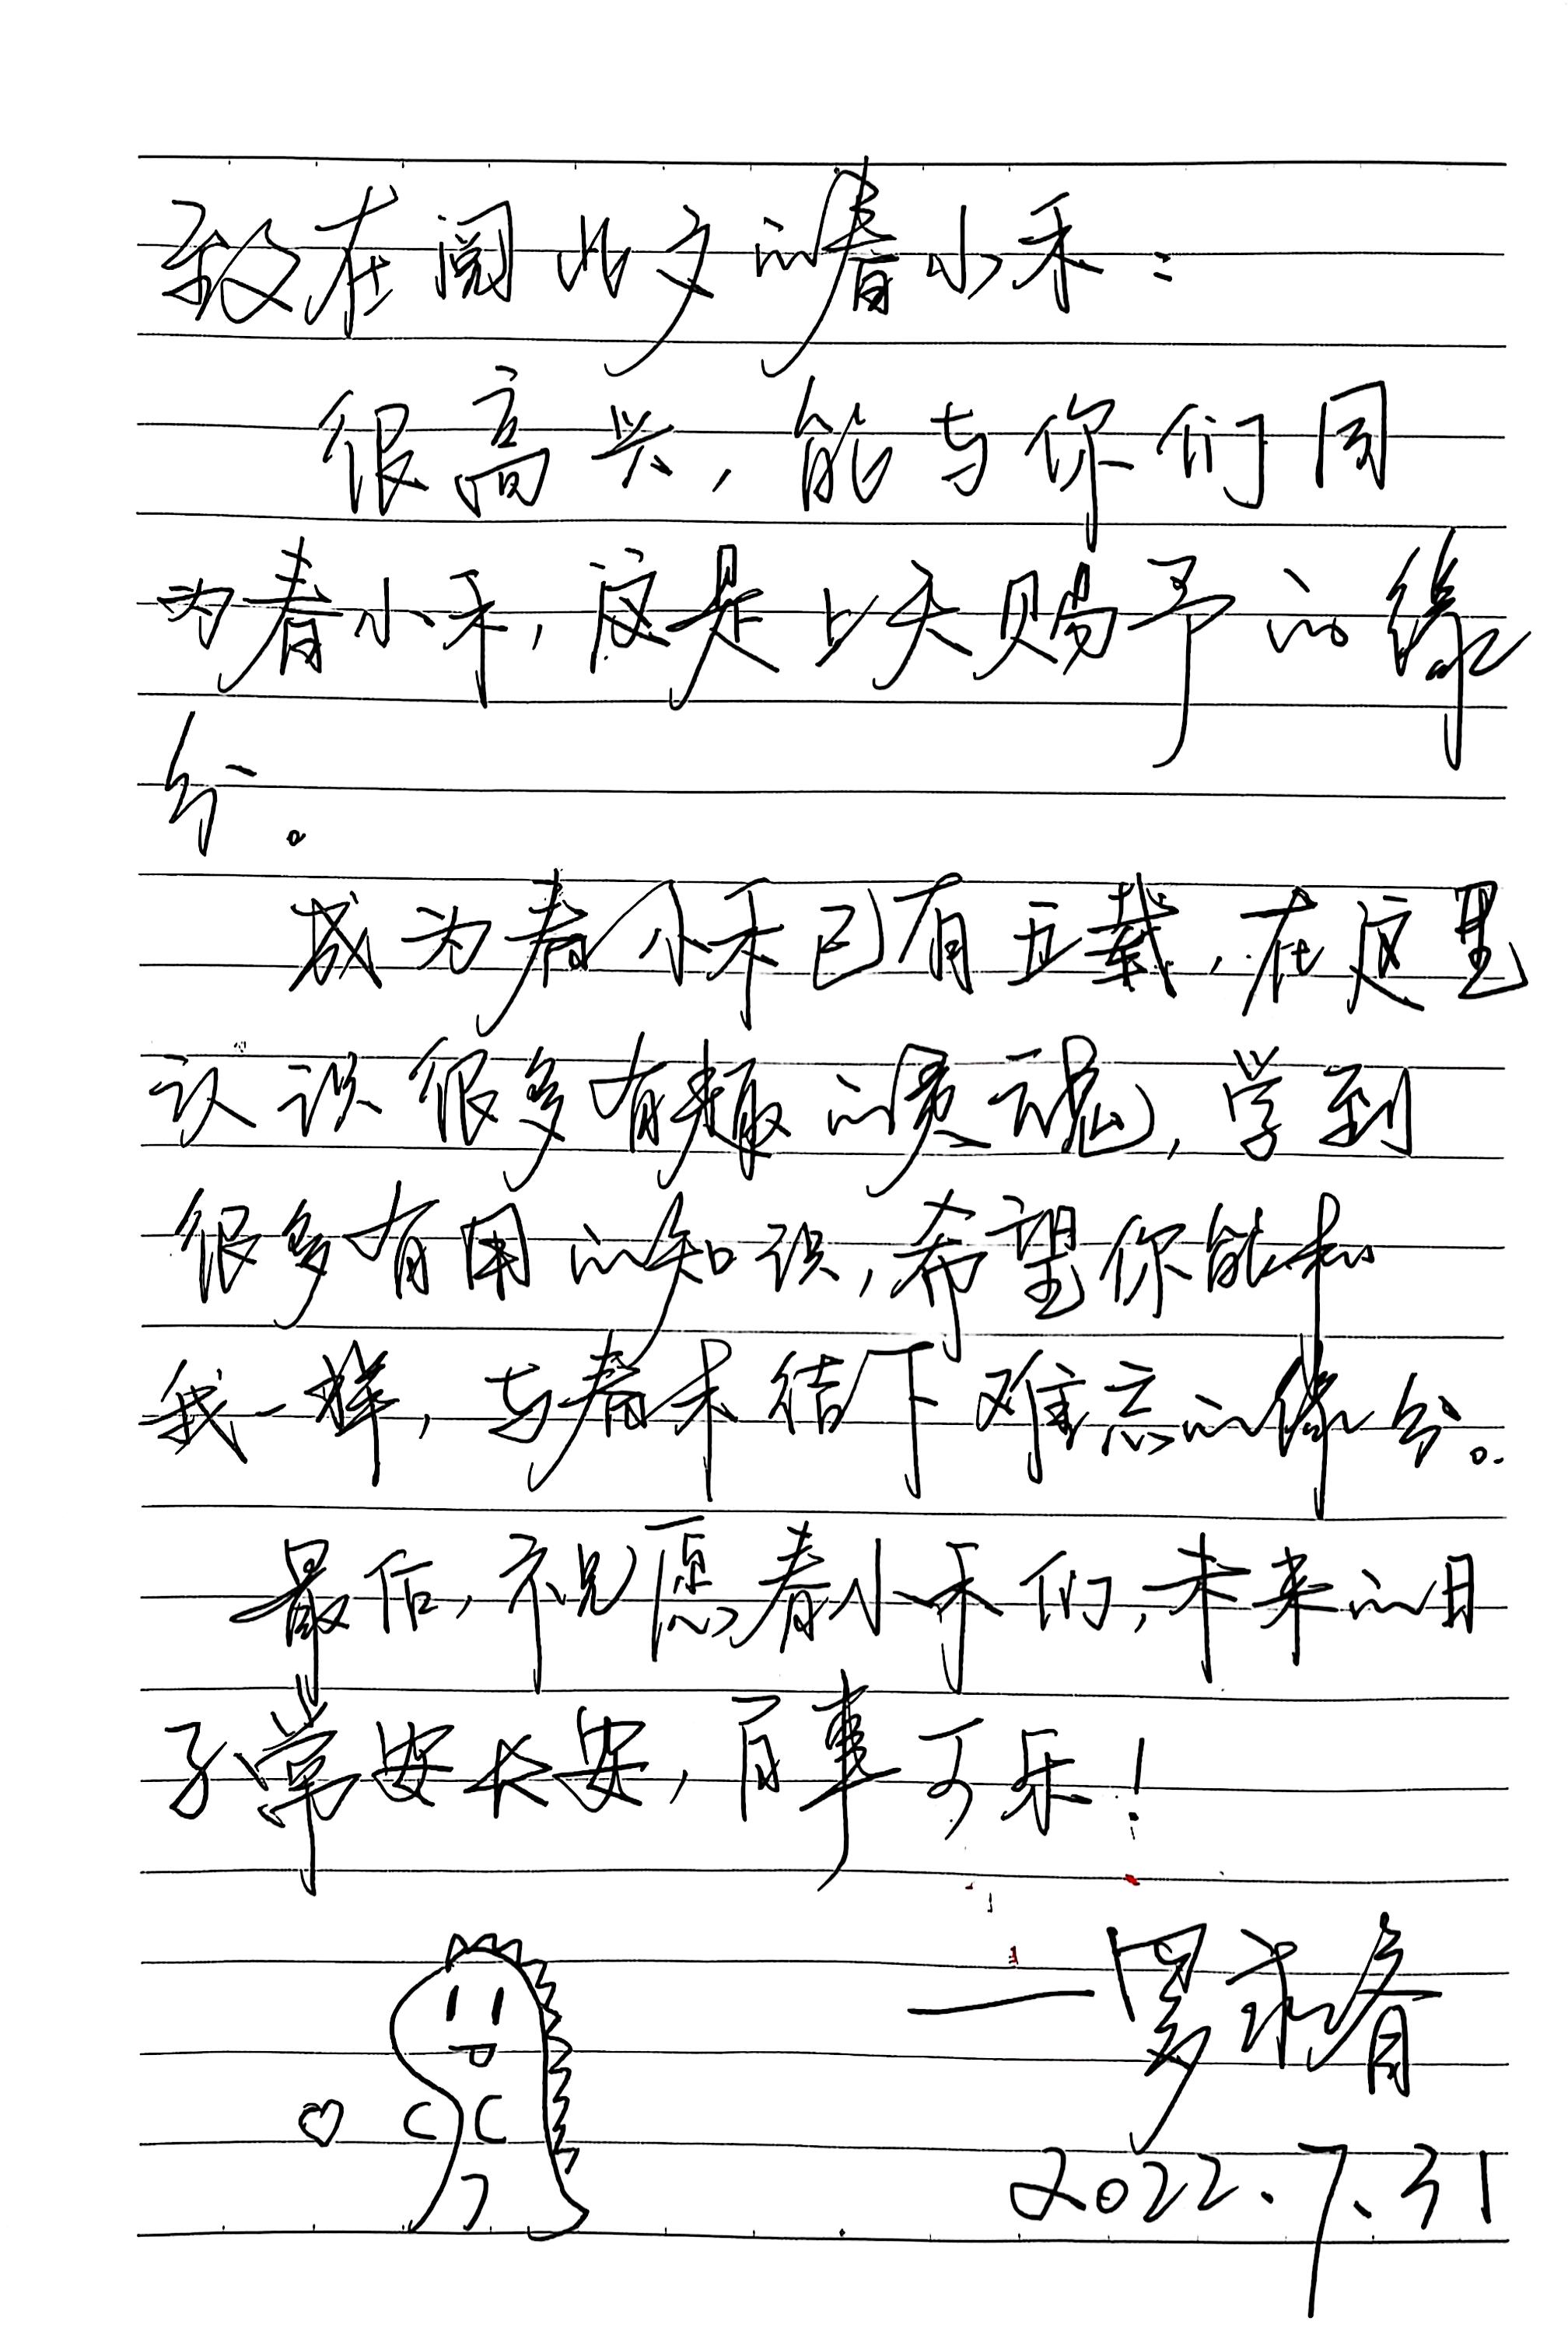 致在阅此文的春小禾：
很高兴，能与你们同
为春小禾，这是上天赐予的缘
分。
成为春小禾已有五载，在这里
认识很多有趣的灵魂，学到
很多有用的知识，希望你能和
我一样，与春禾结下难忘的缘分。
最后，祝愿春小禾们，未来的日
子常安长安，百事可乐！
——罗永春
2022.7.31